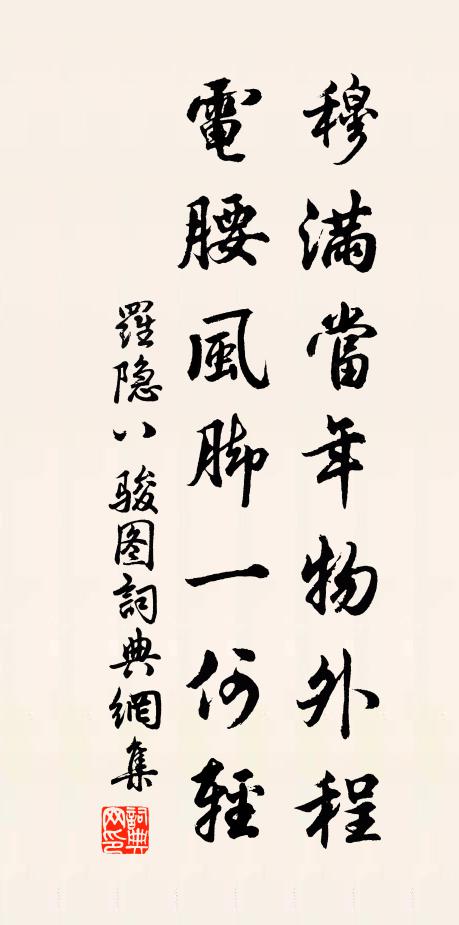 穆滿當年物外程
電腰風脚一何輕
羅隐八骏图詞典網集
詞典網印